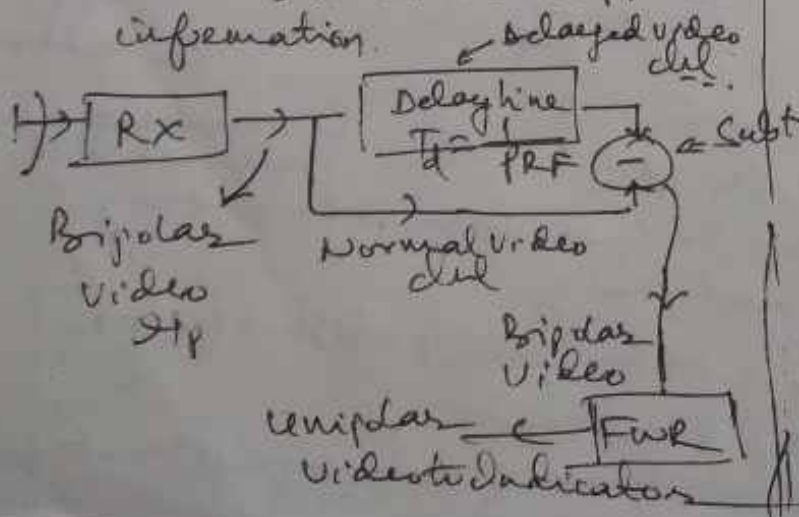 infermation.
Delayed video
chl.
RX
Delay line
Td = 1/PRF
-
Subt
Bipolar
Video
I/p
Normal Video
chl
Bipolar
Video
FWR
Unipolar
Video to Indicator